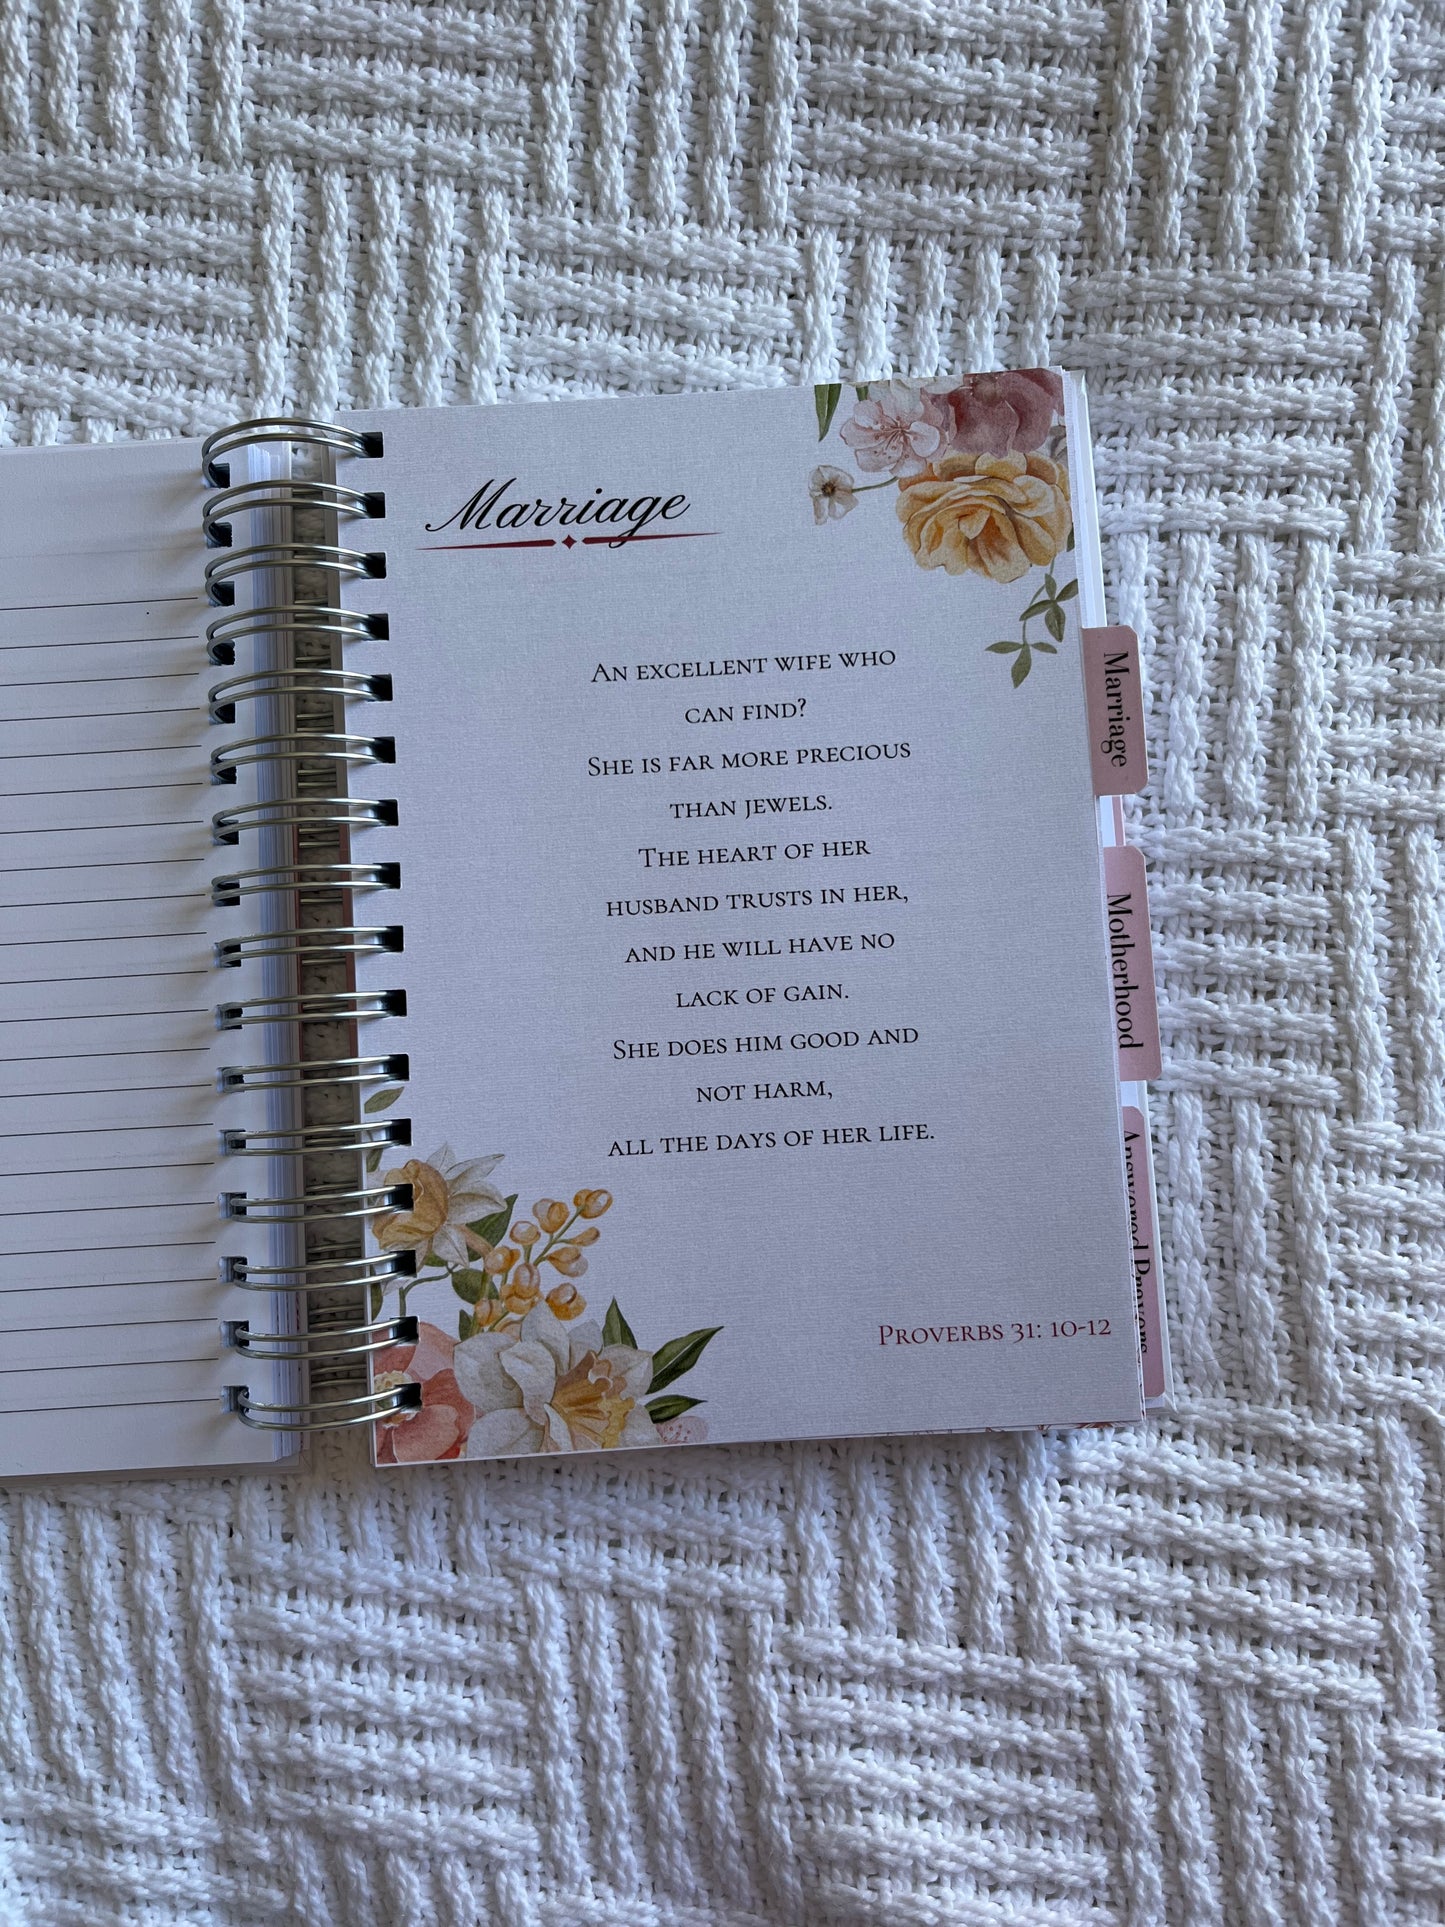 Marriage
An excellent wife who
can find?
She is far more precious
than jewels.
The heart of her
husband trusts in her,
and he will have no
lack of gain.
She does him good and
not harm,
all the days of her life.
Proverbs 31: 10-12
Marriage
Motherhood
Answered Prayers